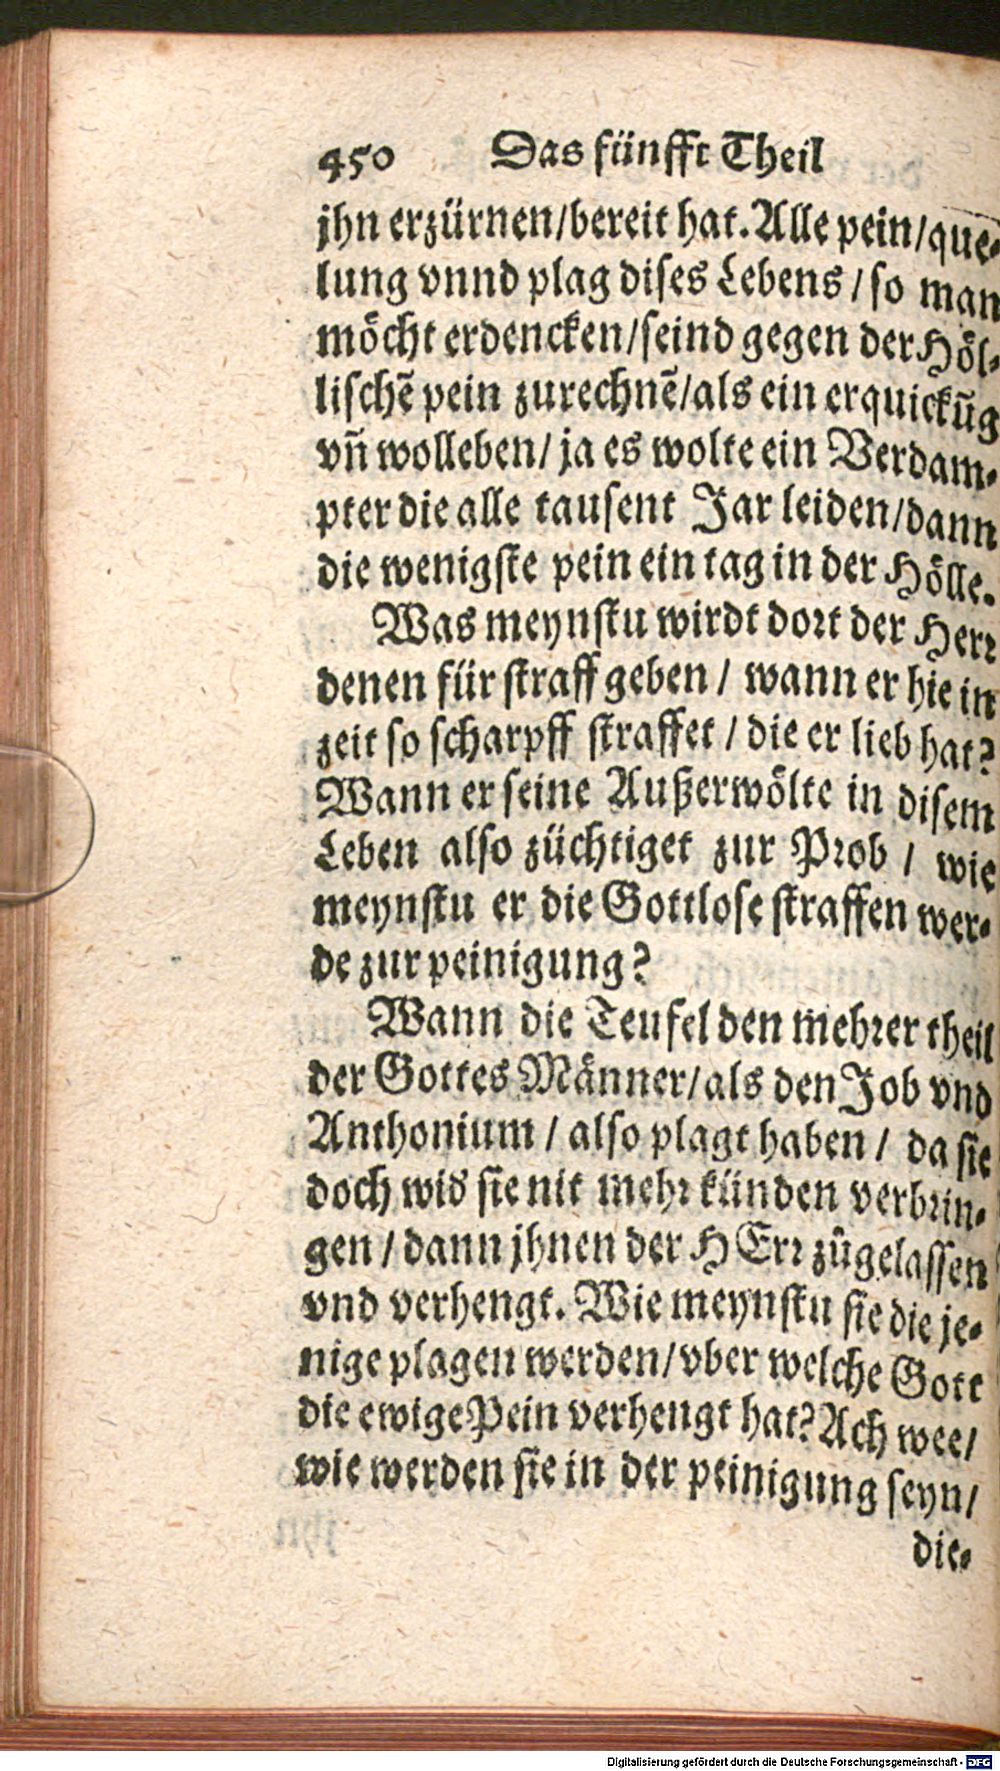 450 Das fünfft Theil
jhn erzürnen/bereit hat. Alle pein/que-
lung vnnd plag dises Lebens/so man
möcht erdencken/seind gegen der Höl-
lischē pein zurechnē/als ein erquickūg
vn̄ wolleben/ja es wolte ein Verdam-
pter die alle tausent Jar leiden/dann
die wenigste pein ein tag in der Hölle.
Was meynstu wirdt dort der Herr
denen für straff geben/wann er hie in
zeit so scharpff straffet/die er lieb hat?
Wann er seine Außerwölte in disem
Leben also züchtiget zur Prob/wie
meynstu er die Gottlose straffen wer-
de zur peinigung?
Wann die Teufel den mehrer theil
der Gottes Männer/als den Job vnd
Anthonium/also plagt haben/da sie
doch wid' sie nit mehr künden verbrin-
gen/dann jhnen der HErr zůgelassen
vnd verhengt. Wie meynstu sie die je-
nige plagen werden/vber welche Gott
die ewige Pein verhengt hat? Ach wee/
wie werden sie in der peinigung seyn/
die-
Digitalisierung gefördert durch die Deutsche Forschungsgemeinschaft - DFG